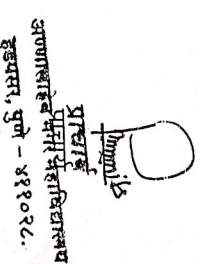 प्राचार्य
अण्णासाहेब मगर महाविद्यालय
हडपसर, पुणे - ४११०२८.